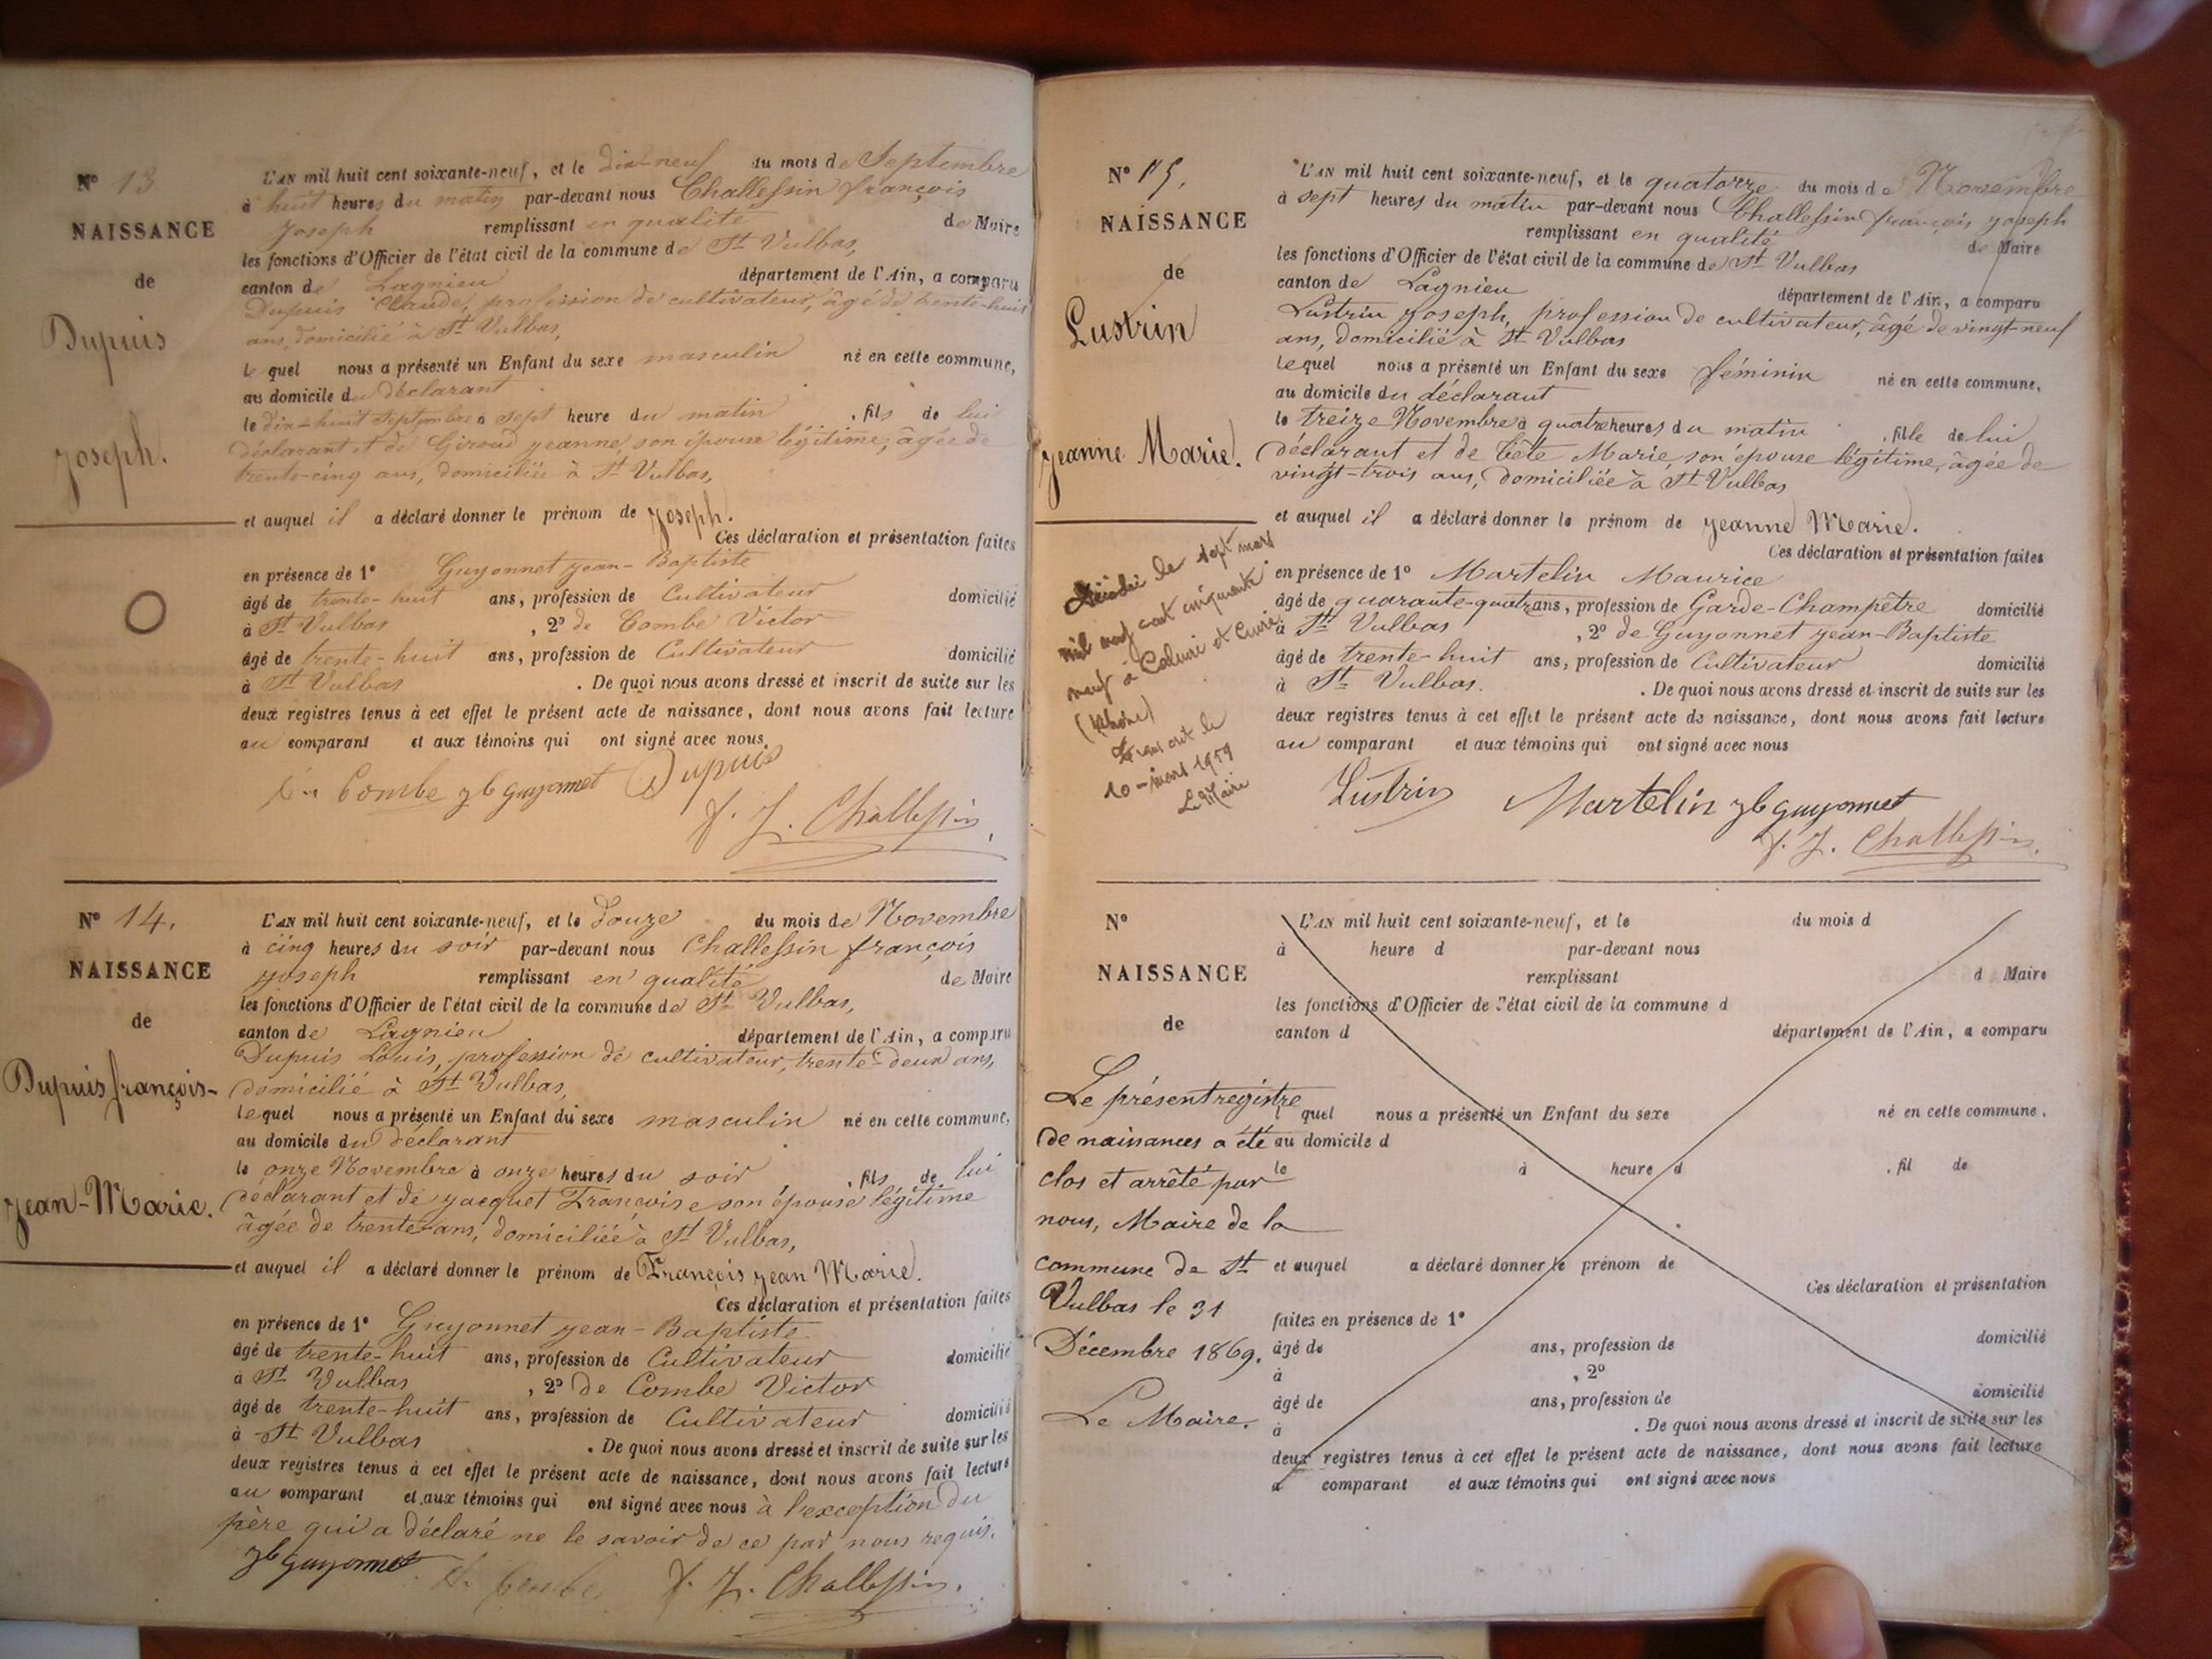 N° 13
NAISSANCE
de
Dupuis
Joseph.
L'AN mil huit cent soixante-neuf, et le dix-neuf du mois de Septembre
à huit heures du matin par-devant nous Challessin françois
Joseph remplissant en qualité de Maire
les fonctions d'Officier de l'état civil de la commune de St Vulbas,
canton de Lagnieu département de l'Ain, a comparu
Dupuis Claude, profession de cultivateur, âgé de trente-huit
ans, domicilié à St Vulbas,
lequel nous a présenté un Enfant du sexe masculin né en cette commune,
au domicile du déclarant
le dix-huit Septembre à sept heure du matin , fils de lui
déclarant et de Giroud jeanne, son épouse légitime, âgée de
trente-cinq ans, domiciliée à St Vulbas,
et auquel il a déclaré donner le prénom de Joseph.
Ces déclaration et présentation faites
en présence de 1° Guyonnet jean-Baptiste
âgé de trente-huit ans, profession de Cultivateur domicilié
à St Vulbas , 2° de Combe Victor
âgé de trente-huit ans, profession de Cultivateur domicilié
à St Vulbas . De quoi nous avons dressé et inscrit de suite sur les
deux registres tenus à cet effet le présent acte de naissance, dont nous avons fait lecture
au comparant et aux témoins qui ont signé avec nous.
Combe jb guyonnet Dupuis
f. J. Challessin
N° 14.
NAISSANCE
de
Dupuis françois-
Jean-Marie.
L'AN mil huit cent soixante-neuf, et le douze du mois de Novembre
à cinq heures du soir par-devant nous Challessin françois
Joseph remplissant en qualité de Maire
les fonctions d'Officier de l'état civil de la commune de St Vulbas,
canton de Lagnieu département de l'Ain, a comparu
Dupuis Louis, profession de cultivateur, trente-deux ans,
domicilié à St Vulbas,
lequel nous a présenté un Enfant du sexe masculin né en cette commune,
au domicile du déclarant
le onze Novembre à onze heures du soir , fils de lui
déclarant et de jacquet Francoise son épouse légitime
âgée de trente ans, domiciliéé à St Vulbas,
et auquel il a déclaré donner le prénom de François jean Marie.
Ces déclaration et présentation faites
en présence de 1° Guyonnet jean-Baptiste
âgé de trente-huit ans, profession de Cultivateur domicilié
à St Vulbas , 2° de Combe Victor
âgé de trente-huit ans, profession de Cultivateur domicilié
à St Vulbas . De quoi nous avons dressé et inscrit de suite sur les
deux registres tenus à cet effet le présent acte de naissance, dont nous avons fait lecture
au comparant et aux témoins qui ont signé avec nous à l'exception du
père qui a déclaré ne le savoir de ce par nous requis.
jb guyonnet Combe f. J. Challessin.
N° 15.
NAISSANCE
de
Lustrin
Jeanne Marie.
Décédée le sept mars
mil neuf cent cinquante
neuf à Caluire et Cuire
(Rhône)
Transcrit le
10 - mars 1959
Le Maire
L'AN mil huit cent soixante-neuf, et le quatorze du mois de Novembre
à sept heures du matin par-devant nous Challessin françois joseph
remplissant en qualité de Maire
les fonctions d'Officier de l'état civil de la commune de St Vulbas
canton de Lagnieu département de l'Ain, a comparu
Lustrin Joseph, profession de cultivateur, âgé de vingt-neuf
ans, domiciliié à St Vulbas
lequel nous a présenté un Enfant du sexe féminin né en cette commune,
au domicile du déclarant
le treize Novembre à quatre heures du matin , fille de lui
déclarant et de Bête Marie, son épouse légitime, âgée de
vingt-trois ans, domiciliée à St Vulbas
et auquel il a déclaré donner le prénom de jeanne Marie.
Ces déclaration et présentation faites
en présence de 1° Martelin Maurice
âgé de quarante-quatr ans, profession de Garde-Champêtre domicilié
à St Vulbas , 2° de Guyonnet jean-Baptiste
âgé de trente-huit ans, profession de Cultivateur domicilié
à St Vulbas. . De quoi nous avons dressé et inscrit de suite sur les
deux registres tenus à cet effet le présent acte de naissance, dont nous avons fait lecture
au comparant et aux témoins qui ont signé avec nous
Lustrin Martelin jb guyonnet
f. J. Challessin.
N°
NAISSANCE
de
Le présent registre
de naissances a été
clos et arrêté par
nous, Maire de la
commune de St
Vulbas le 31
Décembre 1869.
Le Maire.
L'AN mil huit cent soixante-neuf, et le du mois d
à heure d par-devant nous
remplissant d Maire
les fonctions d'Officier de l'état civil de la commune d
canton d département de l'Ain, a comparu
quel nous a présenté un Enfant du sexe né en cette commune.
au domicile d
le à heure d , fil de
et auquel a déclaré donner le prénom de
Ces déclaration et présentation
faites en présence de 1°
âgé de ans, profession de domicilié
à , 2°
âgé de ans, profession de domicilié
à . De quoi nous avons dressé et inscrit de suite sur les
deux registres tenus à cet effet le présent acte de naissance, dont nous avons fait lecture
a comparant et aux témoins qui ont signé avec nous